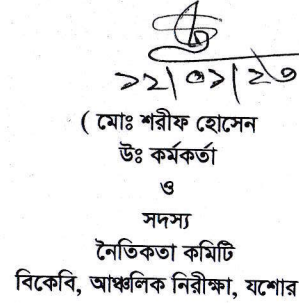 ১২|০১|২৩
( মোঃ শরীফ হোসেন
উঃ কর্মকর্তা
ও
সদস্য
নৈতিকতা কমিটি
বিকেবি, আঞ্চলিক নিরীক্ষা, যশোর